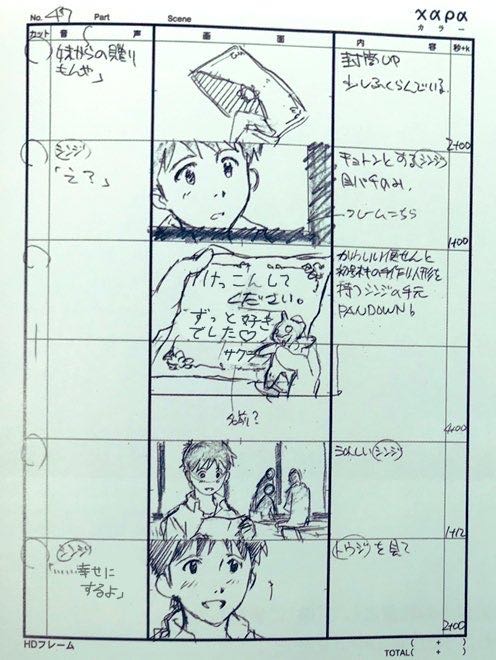 No. 47 Part Scene
χαρα
カラー
カット 音 声 画 面 内 容 秒+k
妹からの贈り
もんや」
封筒UP
少しふくらんでいる。
2+00
シンジ
「え?」
キョトンとするシンジ
目パチのみ。
フレームこちら
1+00
かわいい便せんと
手作り人形を
持つシンジの手元
PAN DOWN
けっこんして
ください。
ずっと好き
でした♡
サクラ
名前?
4+00
うれしいシンジ
1+12
シンジ
「……幸せに
するよ」
トウジを見て
2+00
HDフレーム
TOTAL( + )